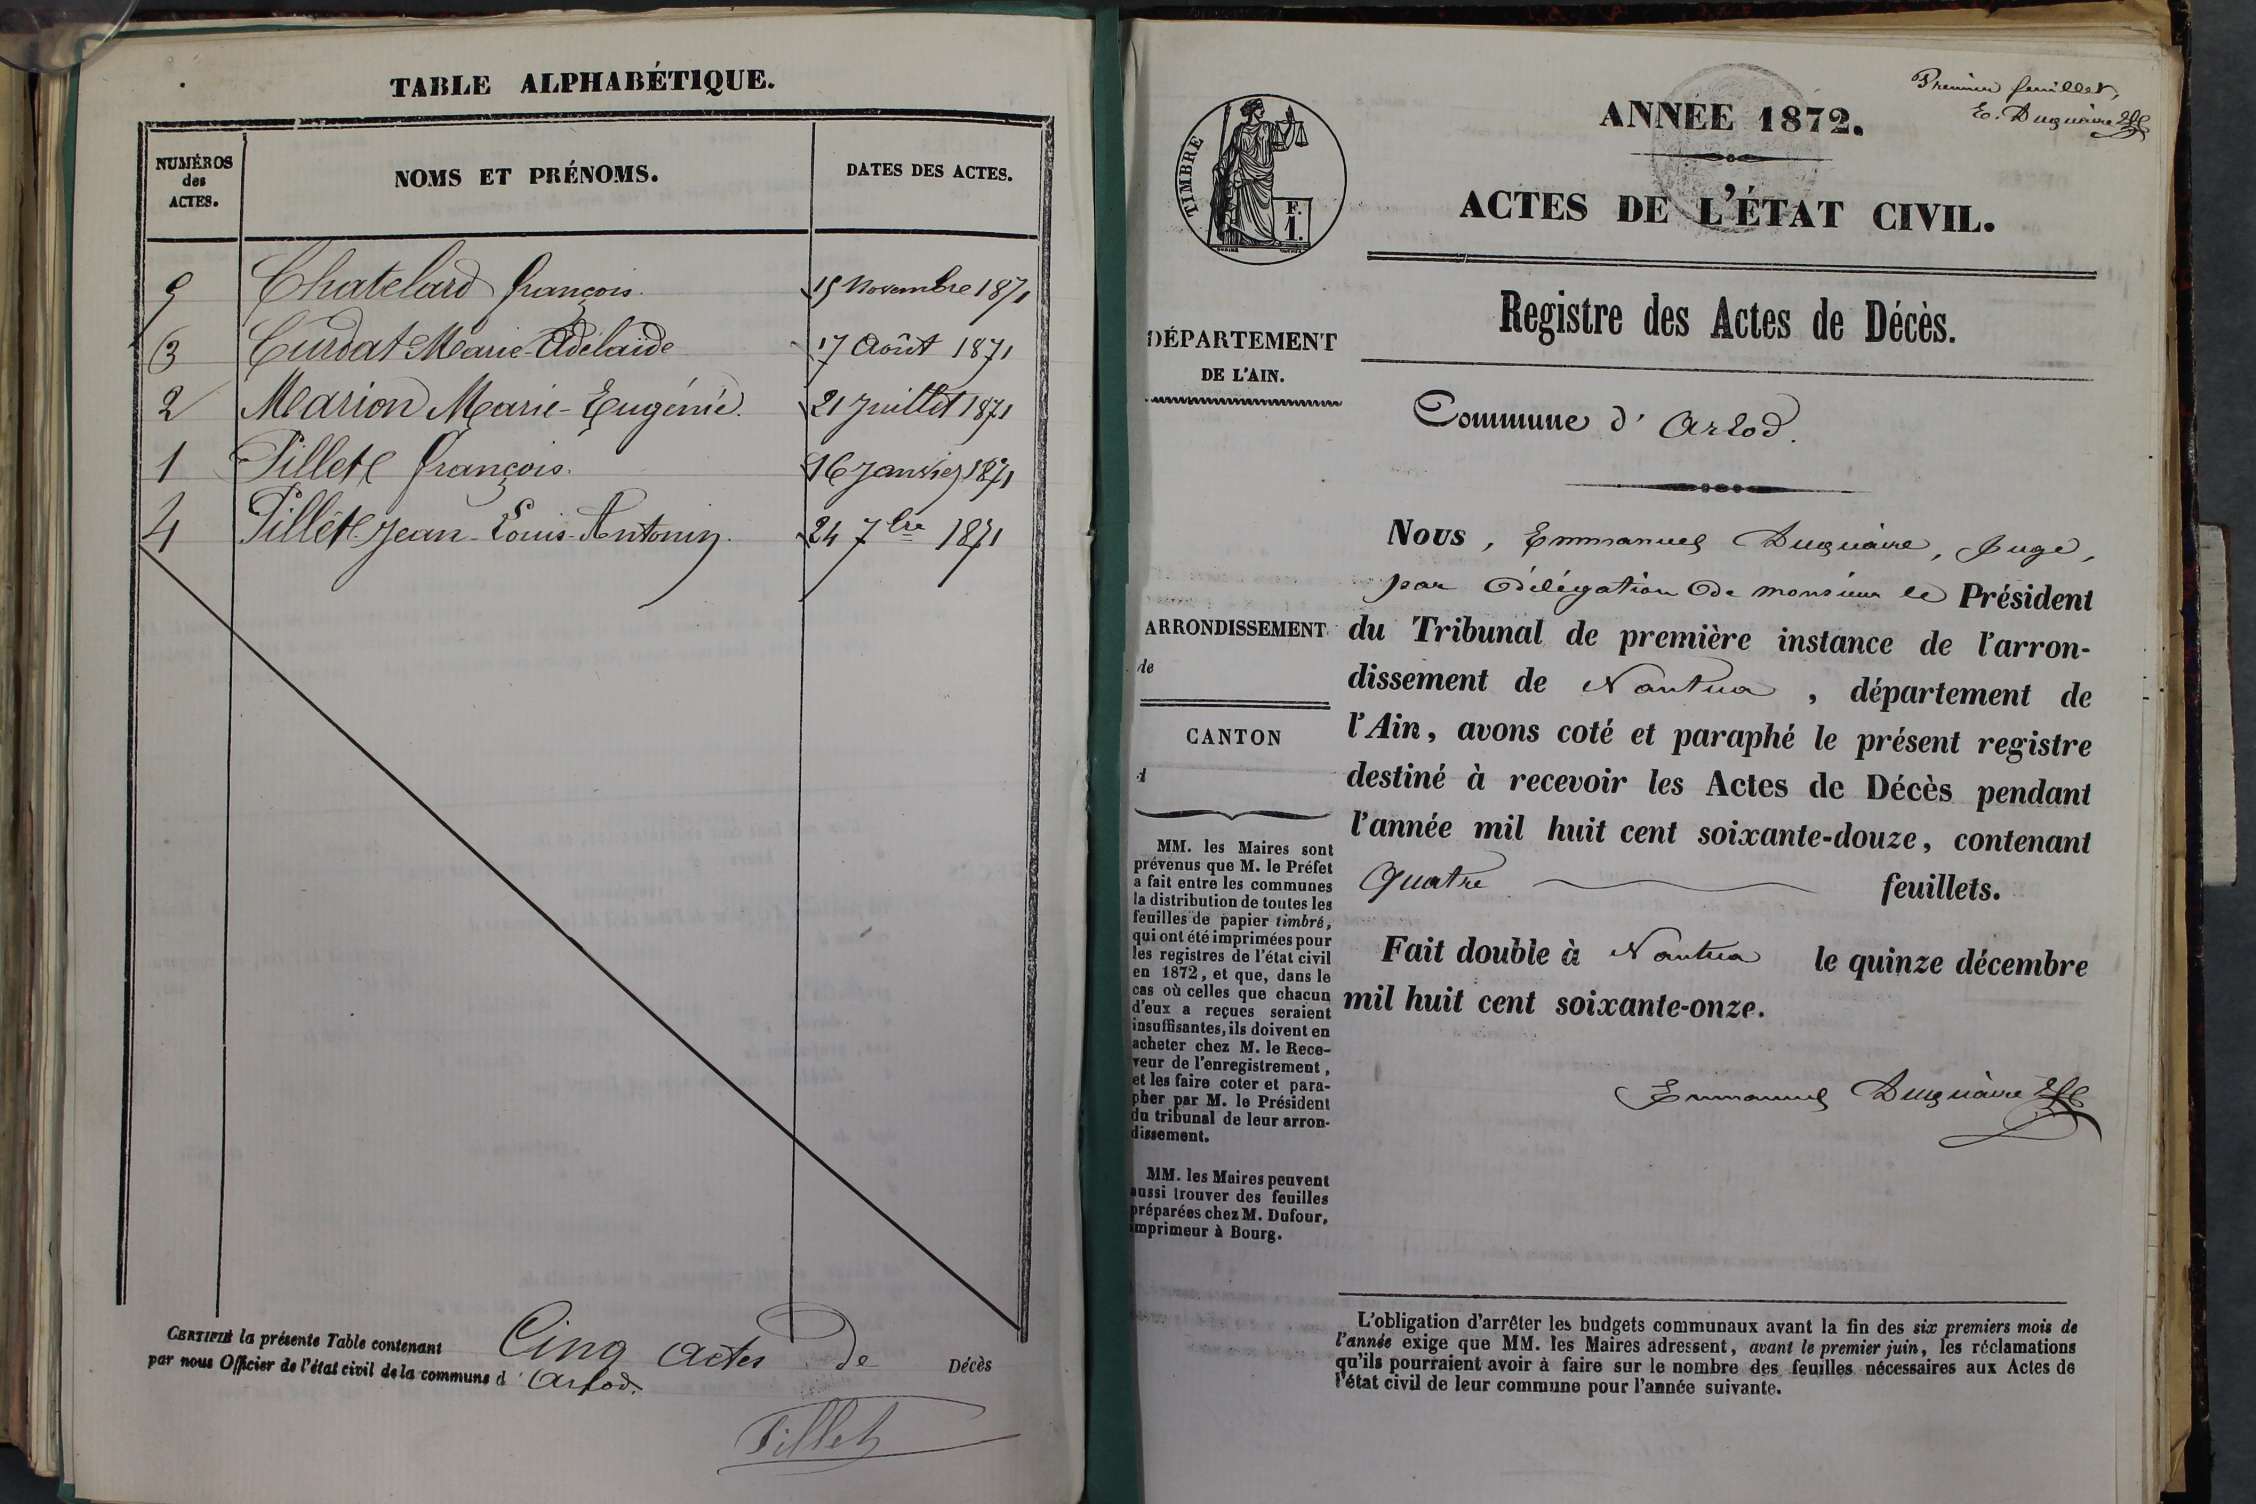 TABLE ALPHABÉTIQUE.
NUMÉROS
des
ACTES.
NOMS ET PRÉNOMS.
DATES DES ACTES.
5 Chatelard françois. 15 Novembre 1871
3 Curdat Marie-Adélaïde 17 Août 1871
2 Marion Marie-Eugénie. 21 Juillet 1871
1 Pillet françois. 16 Janvier 1871
4 Pillet Jean-Louis-Antonin. 24 7bre 1871
CERTIFIÉ la présente Table contenant Cinq actes de Décès
par nous Officier de l'état civil de la commune d'Arlod.
Pillet
Premier feuillet,
E. Duquaire
ANNÉE 1872.
ACTES DE L'ÉTAT CIVIL.
TIMBRE
F.
1.
Registre des Actes de Décès.
DÉPARTEMENT
DE L'AIN.
Commune d'Arlod.
Nous, Emmanuel Duquaire, Juge,
par délégation de monsieur le Président
du Tribunal de première instance de l'arron-
dissement de Nantua, département de
l'Ain, avons coté et paraphé le présent registre
destiné à recevoir les Actes de Décès pendant
l'année mil huit cent soixante-douze, contenant
Quatre feuillets.
Fait double à Nantua le quinze décembre
mil huit cent soixante-onze.
Emmanuel Duquaire
ARRONDISSEMENT
de
CANTON
d
MM. les Maires sont
prévenus que M. le Préfet
a fait entre les communes
la distribution de toutes les
feuilles de papier timbré,
qui ont été imprimées pour
les registres de l'état civil
en 1872, et que, dans le
cas où celles que chacun
d'eux a reçues seraient
insuffisantes, ils doivent en
acheter chez M. le Rece-
veur de l'enregistrement,
et les faire coter et para-
pher par M. le Président
du tribunal de leur arron-
dissement.
MM. les Maires peuvent
aussi trouver des feuilles
préparées chez M. Dufour,
imprimeur à Bourg.
L'obligation d'arrêter les budgets communaux avant la fin des six premiers mois de
l'année exige que MM. les Maires adressent, avant le premier juin, les réclamations
qu'ils pourraient avoir à faire sur le nombre des feuilles nécessaires aux Actes de
l'état civil de leur commune pour l'année suivante.